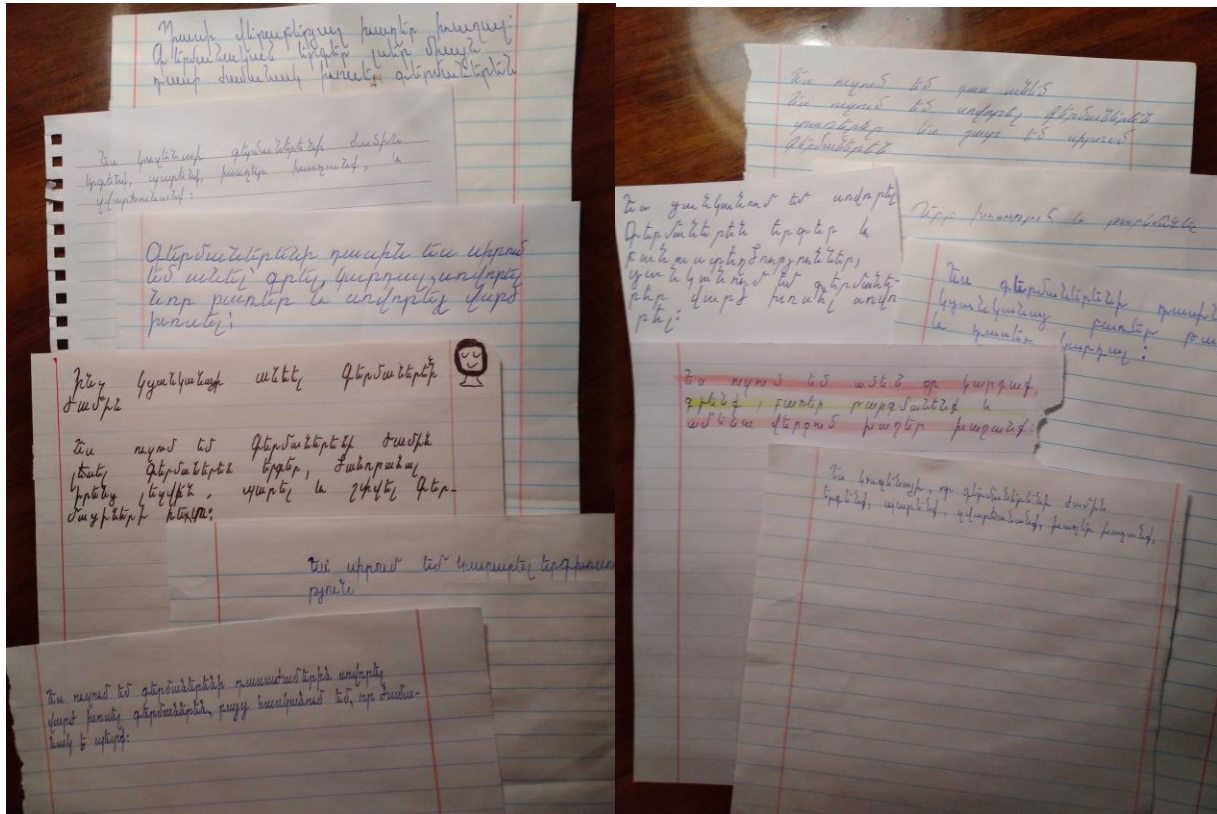 Դասի վերաբերյալ խաղեր խաղալ։
Գերմանական երգեր լսել միայն
դասի ժամանակ խոսել գերմաներեն
Ես կուզենայի գերմաներենի ժամին
երգեինք, պարեինք, խաղեր խաղայինք, և
զվարճանայինք։
Գերմաներենի դասին ես սիրում
եմ անել՝ գրել, կարդալ, սովորել
նոր բառեր և սովորել վարժ
խոսել։
Ինչ կցանկանայի անեել Գերմաներենի
ժամին
Ես ուզում եմ Գերմաներենի ժամին
լսել գերմաներեն երգեր, ծանոթանալ
իրենց լեզվին, պարել և շփվել գեր-
մացիների հետ։
Ես սիրում եմ կատարել
Ես ուզում եմ գերմաներենի դասաժամերին սովորել
վարժ խոսել գերմաներեն, բայց հասկանում եմ, որ ժամա-
նակ է պետք։
Ես ուզում եմ դաս անեմ
Ես ուզում եմ սովորել գերմաներեն
տառերը ես շատ եմ սիրում
գերմաներեն
Ես ցանկանում եմ սովորել
Գերմաներեն երգեր և
բանաստեղծություններ,
ցանկանում եմ գերմանե-
րեն վարժ խոսել սովո
րել։
խոսում և թարգմանել
Ես գերմաներենի դասին
կցանկանայ բառեր
և կարդալ։
Ես ուզում եմ ամեն օր կարդանք,
գրենք, բառեր թարգմանենք և
ամենա վերջում խաղեր խաղանք։
Ես կուզենայի, որ գերմաներենի ժամին
երգենք, պարենք, զվարճանանք, խաղեր խաղանք,